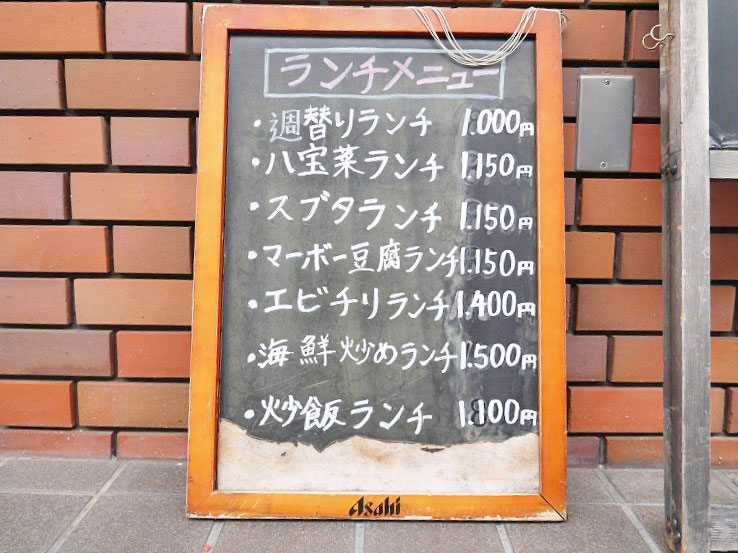 ランチメニュー
・週替りランチ 1.000円
・八宝菜ランチ 1.150円
・スブタランチ 1.150円
・マーボー豆腐ランチ 1.150円
・エビチリランチ 1.400円
・海鮮炒めランチ 1.500円
・炒飯ランチ 1.100円
Asahi